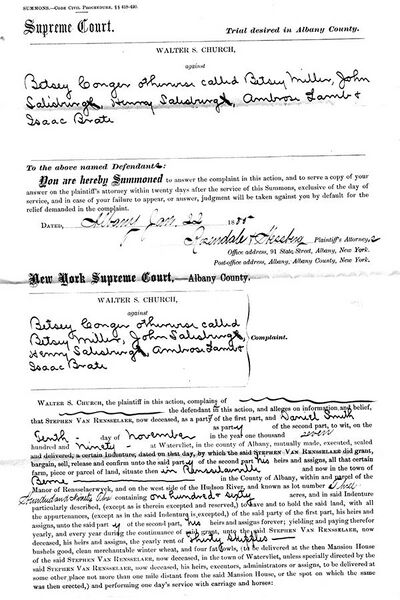 SUMMONS.—CODE CIVIL PROCEDURE, §§ 418-420.
Supreme Court. Trial desired in Albany County.
WALTER S. CHURCH,
against
Betsey Conger otherwise called Betsey Miller, John
Salisburgh, Henry Salisburgh, Ambrose Lamb &
Isaac Brate
To the above named Defendants:
You are hereby Summoned to answer the complaint in this action, and to serve a copy of your
answer on the plaintiff's attorney within twenty days after the service of this Summons, exclusive of the day of
service, and in case of your failure to appear, or answer, judgment will be taken against you by default for the
relief demanded in the complaint.
DATED, Albany Jan. 22 1885
Rosendale & Hessberg Plaintiff's Attorneys
Office address, 91 State Street, Albany, New York.
Post-office address, Albany, Albany County, New York.
New York Supreme Court,—Albany County.
WALTER S. CHURCH,
against
Betsey Conger otherwise called
Betsey Miller, John Salisburgh,
Henry Salisburgh, Ambrose Lamb &
Isaac Brate
Complaint.
WALTER S. CHURCH, the plaintiff in this action, complaining of
the defendant in this action, and alleges on information and belief,
that STEPHEN VAN RENSSELAER, now deceased, as a party of the first part, and Daniel Smith
as party of the second part, to wit, on the
tenth day of November in the year one thousand seven
hundred and ninety at Watervliet, in the county of Albany, mutually made, executed, sealed
and delivered, a certain Indenture, dated on that day, by which the said STEPHEN VAN RENSSELAER did grant,
bargain, sell, release and confirm unto the said party of the second part his heirs and assigns, all that certain
farm, piece or parcel of land, situate then in Rensselaerville and now in the town of
Berne in the County of Albany, within and parcel of the
Manor of Rensselaerwyck, and on the west side of the Hudson River, and known as lot number
containing one hundred & sixty acres, and in said Indenture
particularly described, (except as is therein excepted and reserved,) to have and to hold the said land, with all
the appurtenances, (except as in the said Indenture is excepted,) of the said party of the first part, his heirs and
assigns, unto the said party of the second part, his heirs and assigns forever; yielding and paying therefor
yearly, and every year during the continuance of said grant, unto the said STEPHEN VAN RENSSELAER, now
deceased, his heirs and assigns, the yearly rent of thirty skipples
bushels good, clean merchantable winter wheat, and four fat fowls, (to be delivered at the then Mansion House
of the said STEPHEN VAN RENSSELAER, now deceased, in the town of Watervliet, unless specially directed by the
said STEPHEN VAN RENSSELAER, now deceased, his heirs, executors, administrators or assigns, to be delivered at
some other place not more than one mile distant from the said Mansion House, or the spot on which the same
was then erected,) and performing one day's service with carriage and horses: